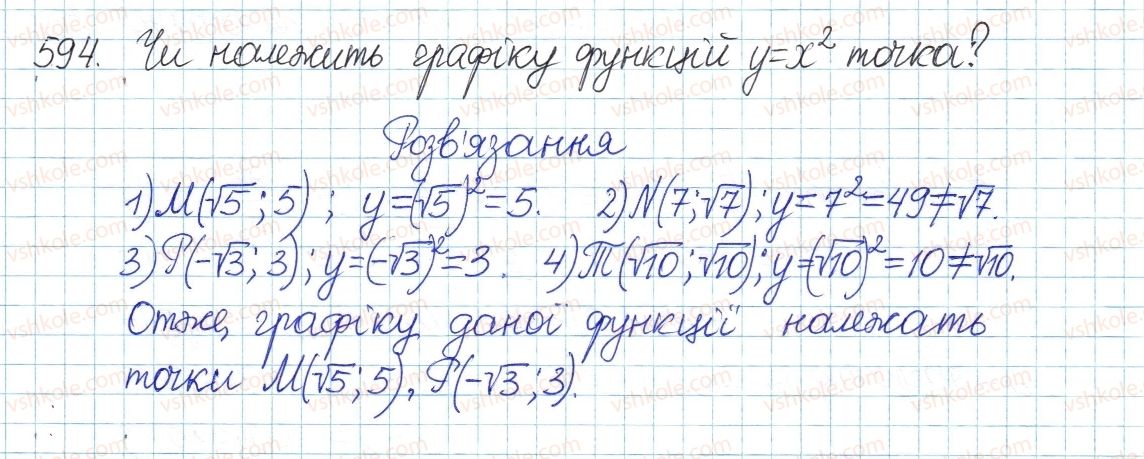 594. Чи належить графіку функцій y=x² точка?
Розв'язання
1) M(√5; 5); y=(√5)²=5. 2) N(7; √7); y=7²=49≠√7.
3) P(-√3; 3); y=(-√3)²=3. 4) T(√10; √10); y=(√10)²=10≠√10.
Отже, графіку даної функції належать
точки M(√5; 5), P(-√3; 3).